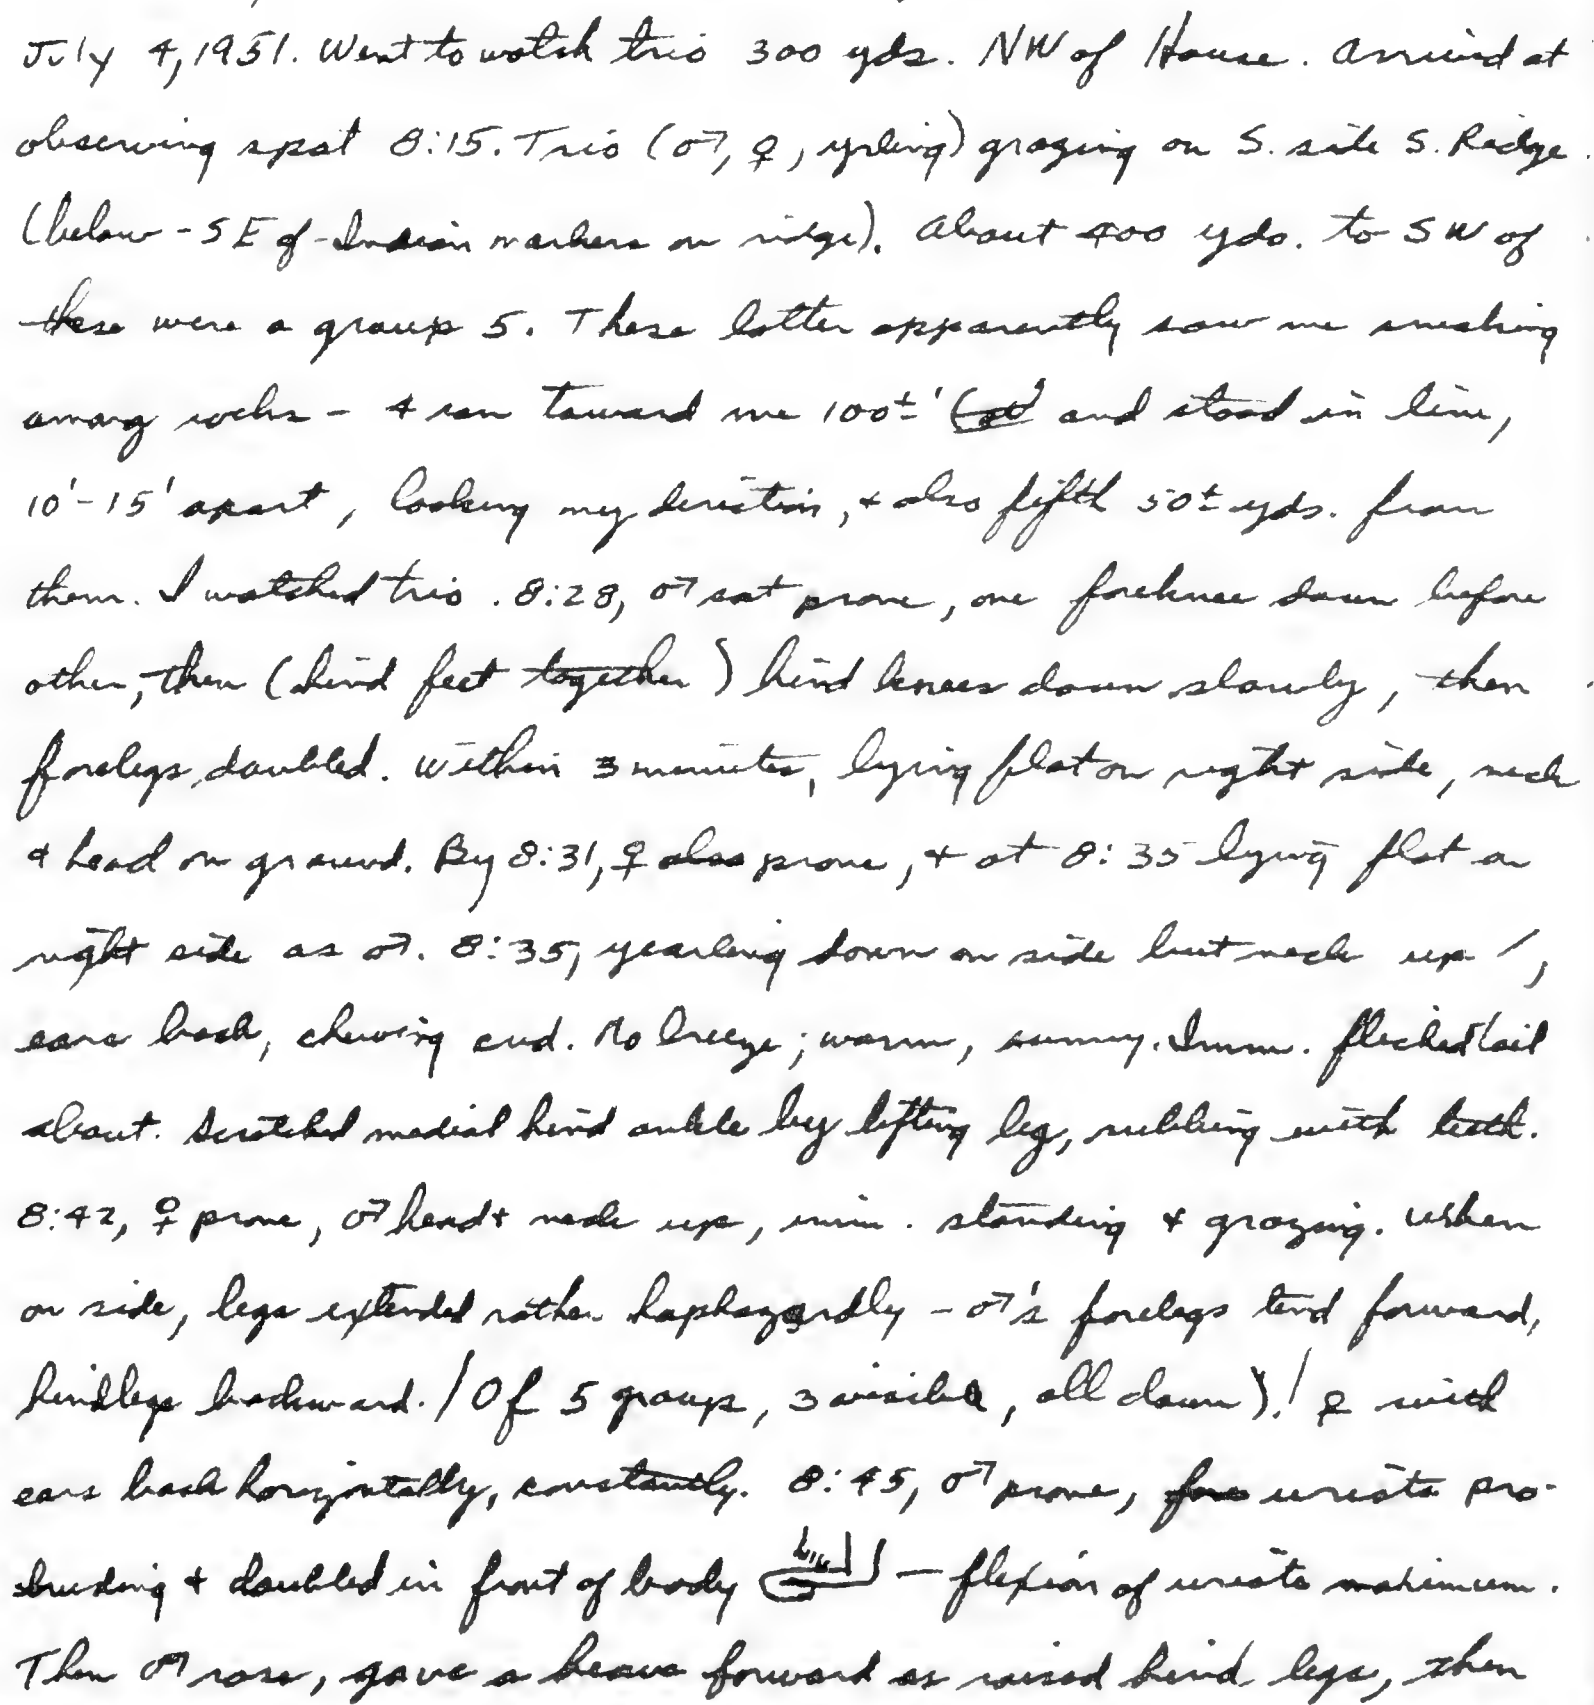 July 4, 1951. Went to watch trio 300 yds. NW of House. Arrived at
observing spot 8:15. Trio (♂, ♀, yrling) grazing on S. side S. Ridge.
(below - SE of - Indian markers on ridge). About 400 yds. to SW of
these were a group 5. These latter apparently saw me sneaking
among rocks - 4 ran toward me 100±' and stood in line,
10'-15' apart, looking my direction, + also fifth 50± yds. from
them. I watched trio. 8:28, ♂ sat prone, one foreknee down before
other, then (hind feet together) hind knees down slowly, then
forelegs doubled. Within 3 minutes, lying flat on right side, neck
+ head on ground. By 8:31, ♀ also prone, + at 8:35 lying flat on
right side as ♂. 8:35, yearling down on side but neck up /,
ears back, chewing cud. No breeze; warm, sunny. Imm. flicked tail
about. Scratched medial hind ankle by lifting leg, rubbing with teeth.
8:42, ♀ prone, ♂ head + neck up, imm. standing + grazing. When
on side, legs extended rather haphazardly - ♂'s forelegs tend forward,
hindlegs backward. / Of 5 group, 3 visible, all down)! ♀ with
ears back horizontally, constantly. 8:45, ♂ prone, fore wrists pro-
truding + doubled in front of body — flexion of wrists maximum.
Then ♂ rose, gave a heave forward as raised hind legs, then